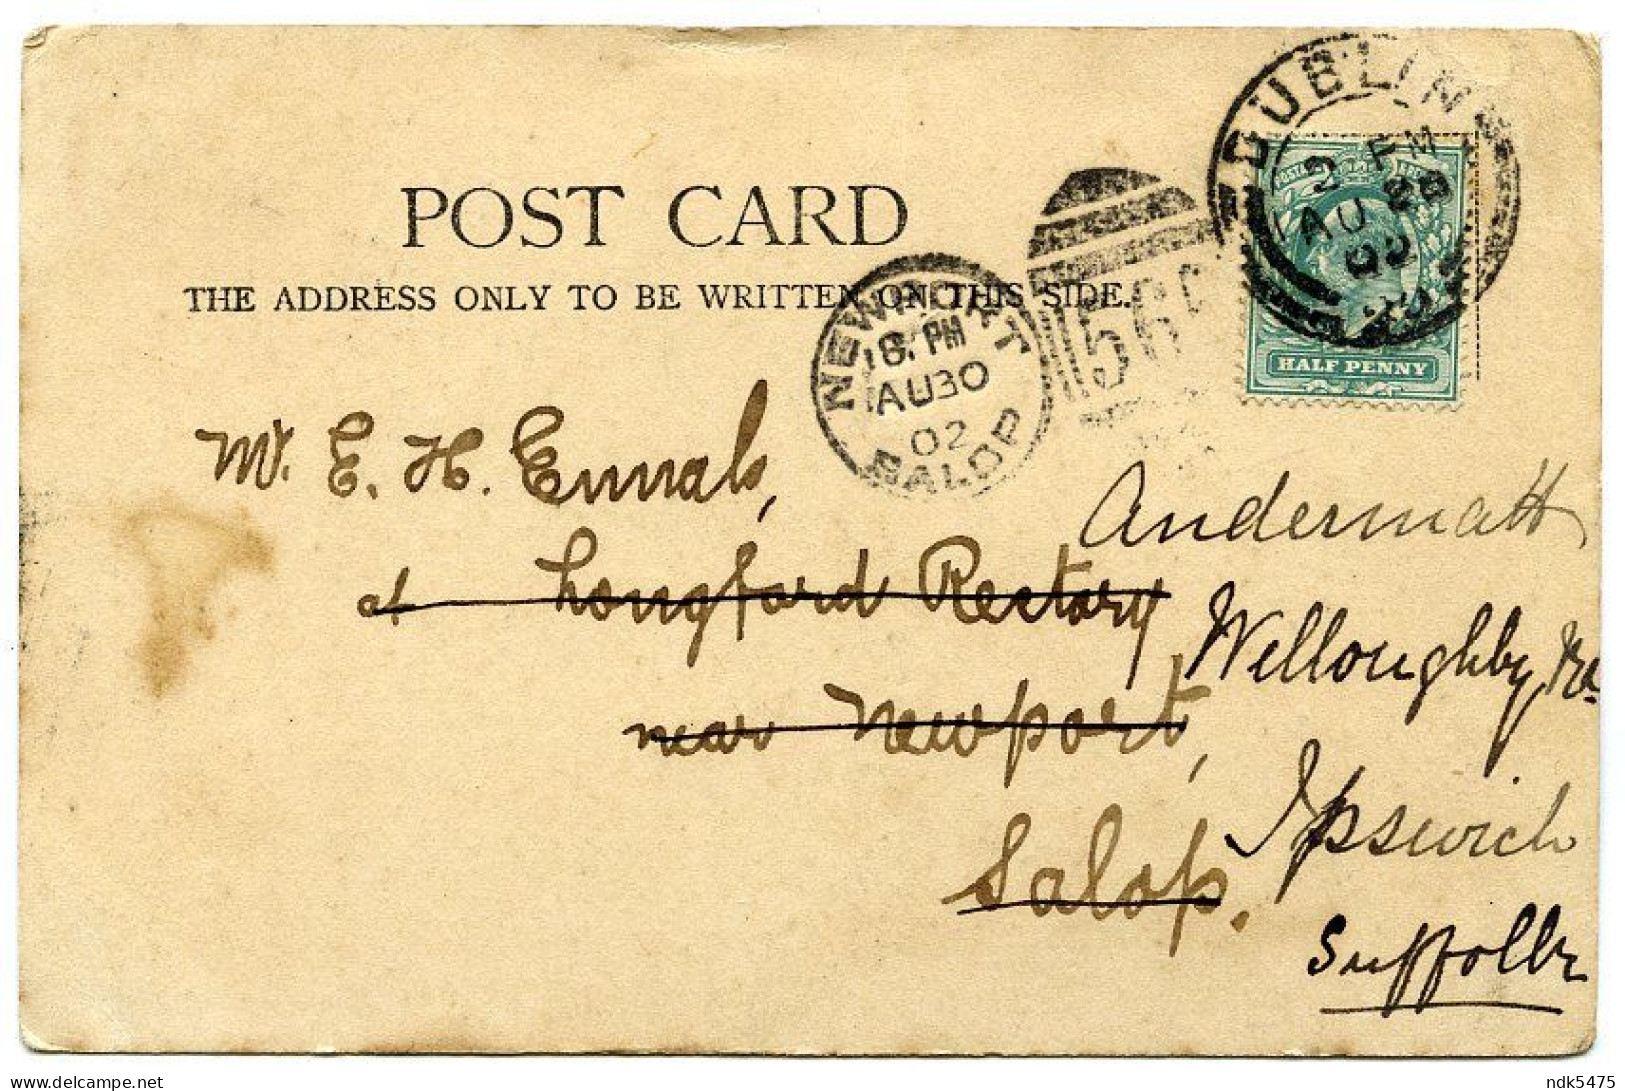 POST CARD
THE ADDRESS ONLY TO BE WRITTEN ON THIS SIDE.
DUBLIN
2 PM
AU 28
02
HALF PENNY
NEWPORT
8. PM
AU 30
02
SALOP
Mr. E. H. Ennals,
at Longford Rectory
near Newport,
Salop.
Andermatt
Willoughby Rd
Ipswich
Suffolk
ndk5475